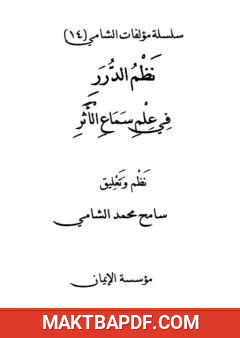 سلسلة مؤلفات الشامي (١٤)
نَظْمُ الدُّرَرِ
فِي عِلْمِ سَمَاعِ الْأَثَرِ
نَظْم وَتَعْلِيق
سامح محمد الشامي
مؤسسة الإيمان
MAKTBAPDF.COM